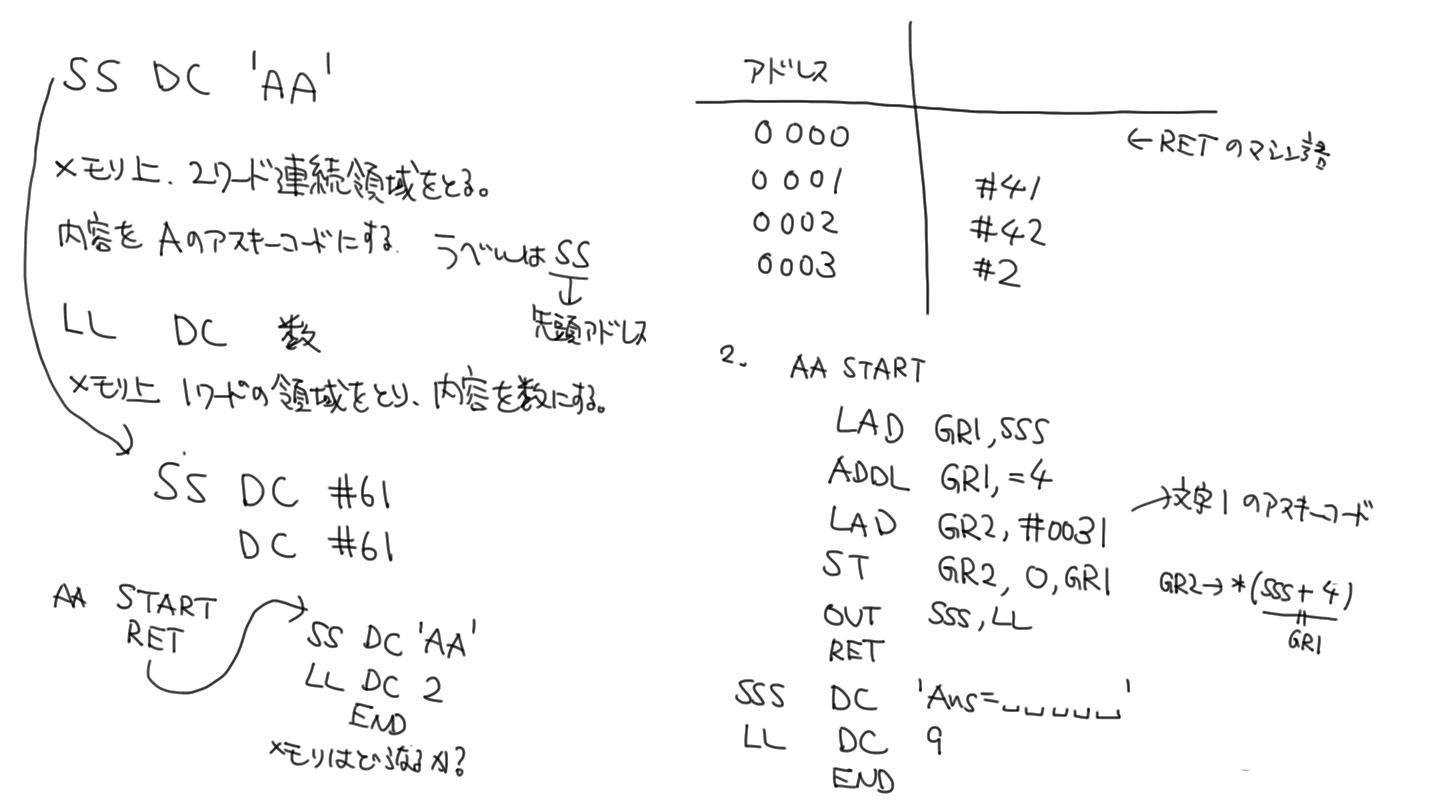 SS DC 'AA'
メモリ上、2ワード連続領域をとる。
内容を Aのアスキーコードにする。 ラベルは SS
↓
先頭アドレス
LL DC 数
メモリ上 1ワードの領域をとり、内容を数にする。
SS DC #61
DC #61
AA START
RET
SS DC 'AA'
LL DC 2
END
メモリはどうなるか?
アドレス
0000 ←RETのマシン語
0001 #41
0002 #42
0003 #2
2. AA START
LAD GR1,SSS
ADDL GR1,=4
LAD GR2,#0031 →文字1のアスキーコード
ST GR2, 0,GR1 GR2→*(SSS+4)
GR1
OUT SSS,LL
RET
SSS DC 'Ans=␣␣␣␣␣'
LL DC 9
END